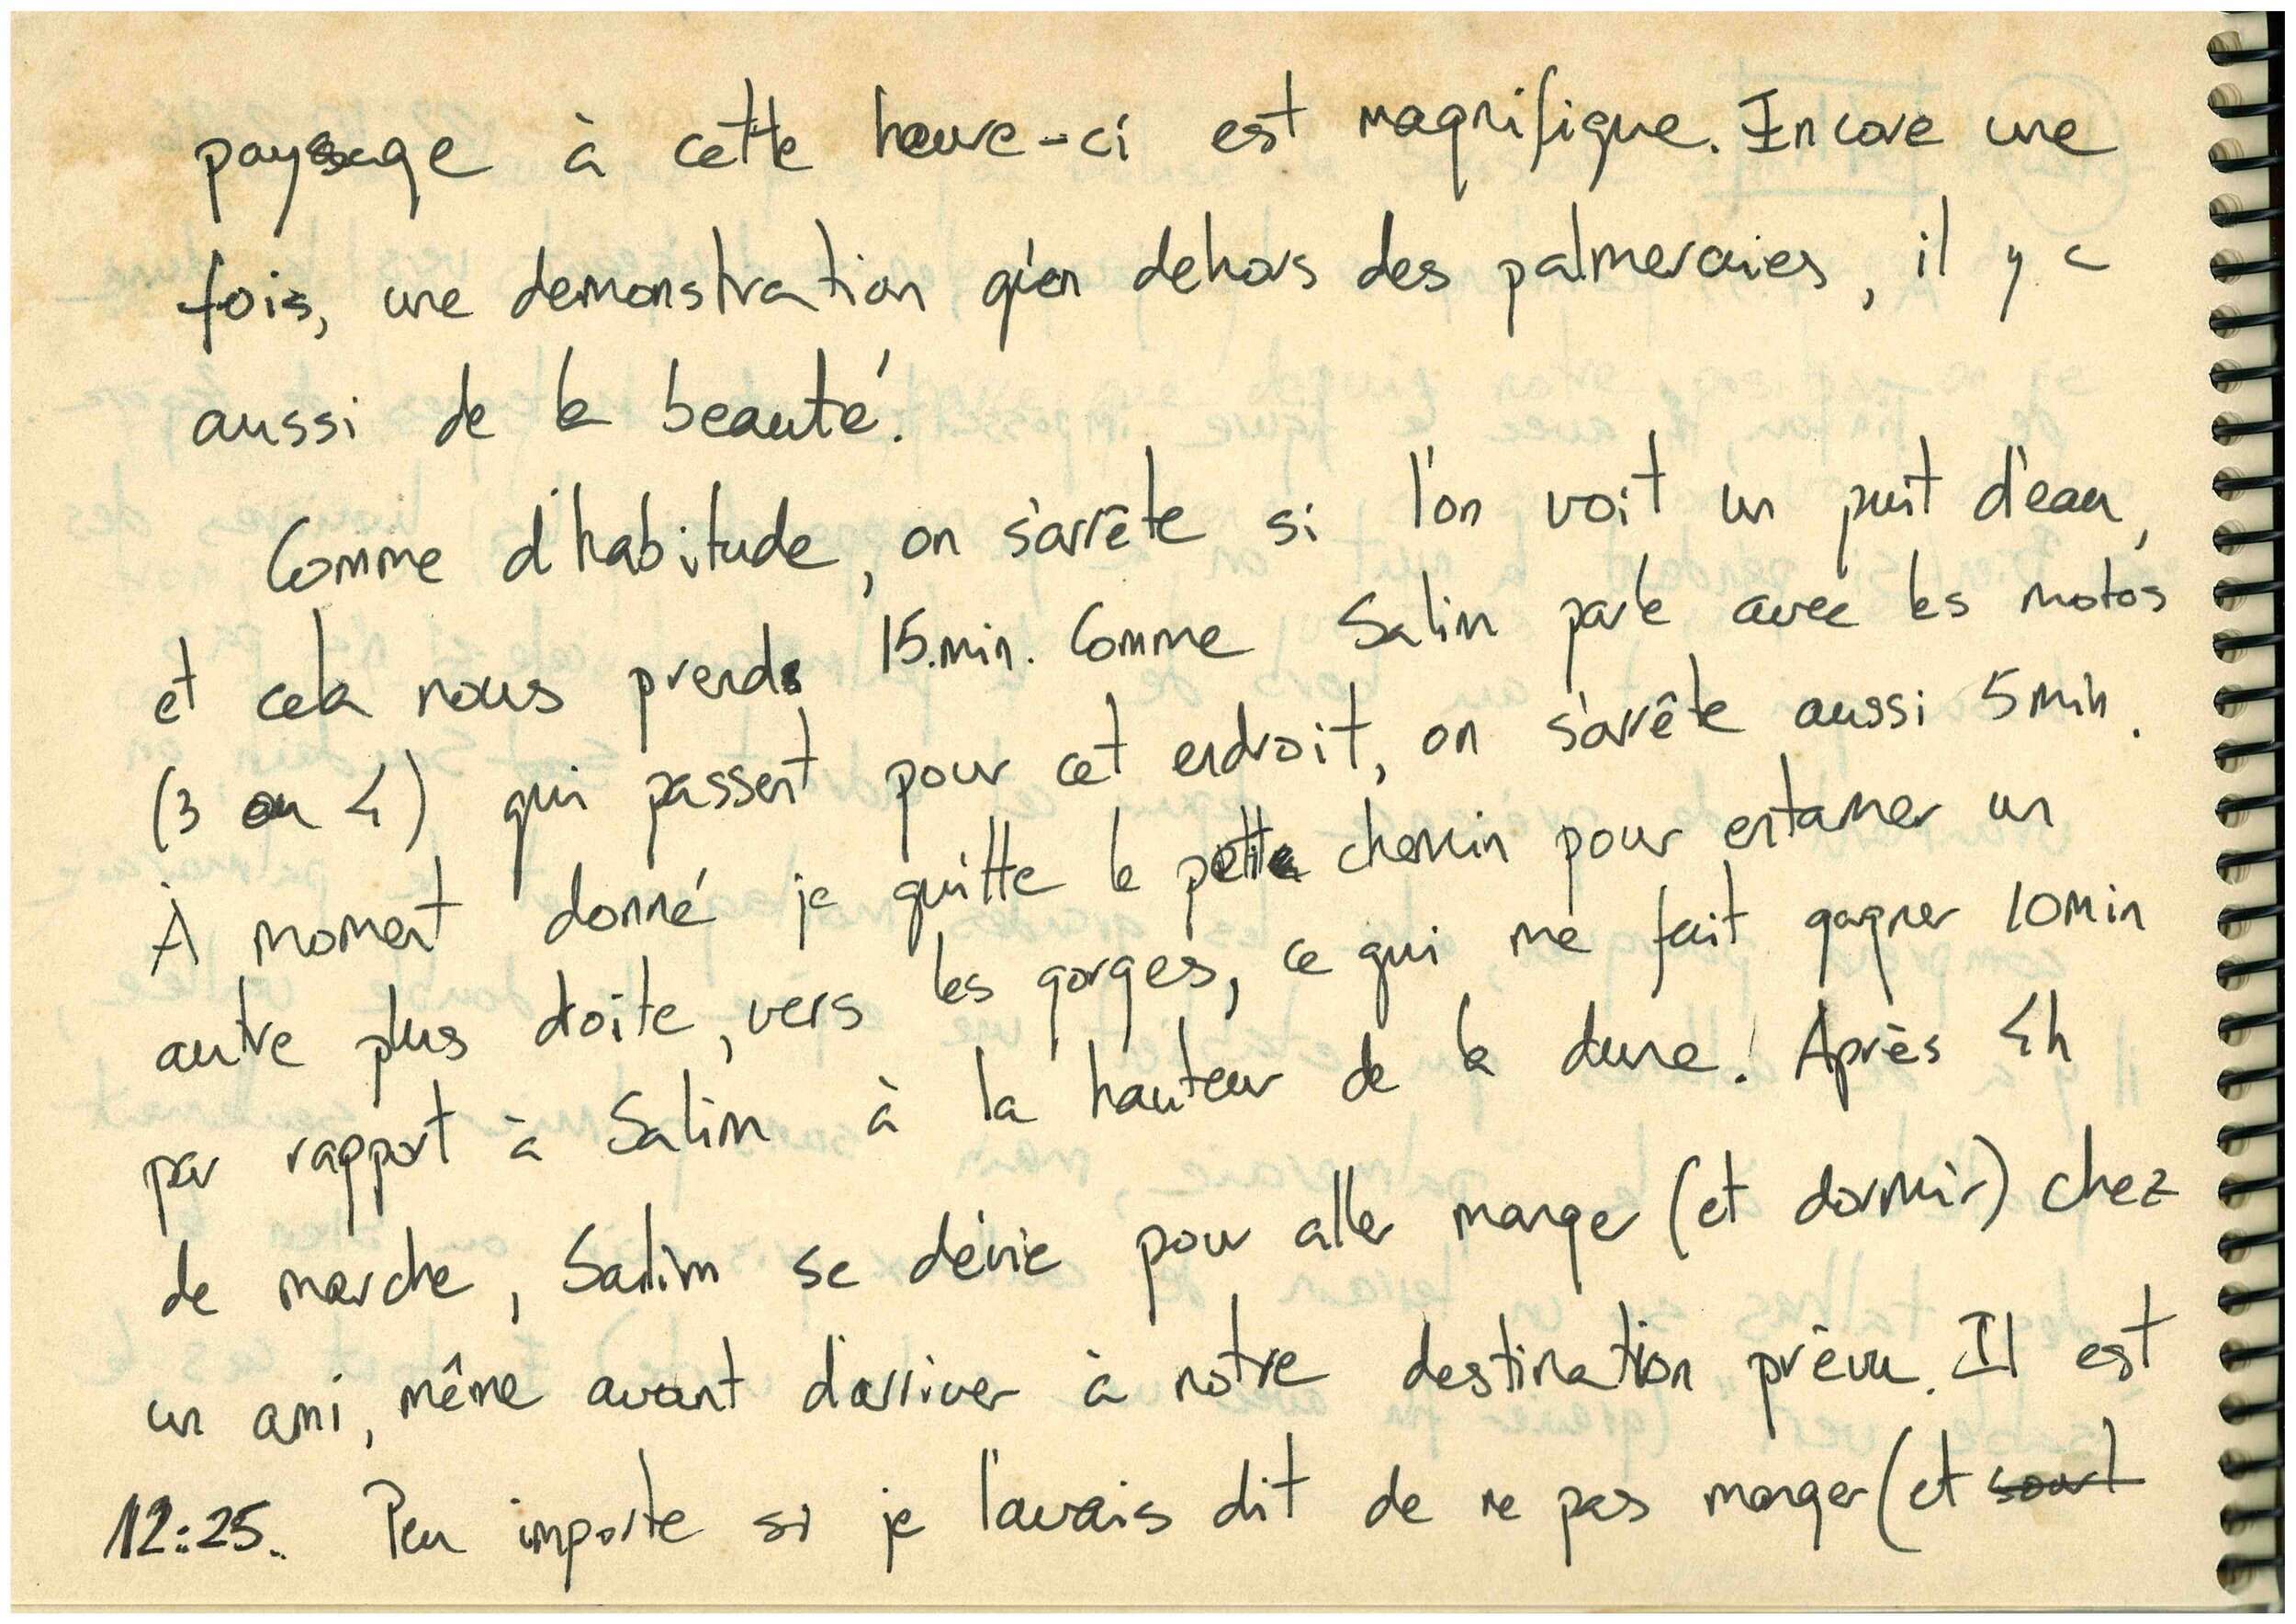 paysage à cette heure-ci est magnifique. Encore une
fois, une demonstration qu'en dehors des palmeraies, il y a
aussi de la beauté.
Comme d'habitude, on s'arrête si l'on voit un puit d'eau,
et cela nous prends 15.min. Comme Salim parle avec les motos
(3 ou 4) qui passent pour cet endroit, on s'arrête aussi 5min.
À moment donné je quitte le petite chemin pour entamer un
autre plus droite, vers les gorges, ce qui me fait gagner 10min
par rapport à Salim à la hauteur de la dune. Après 4h
de marche, Salim se dévie pour aller manger (et dormir) chez
un ami, même avant d'arriver à notre destination prévu. Il est
12:25. Peu importe si je l'avais dit de ne pas manger (et